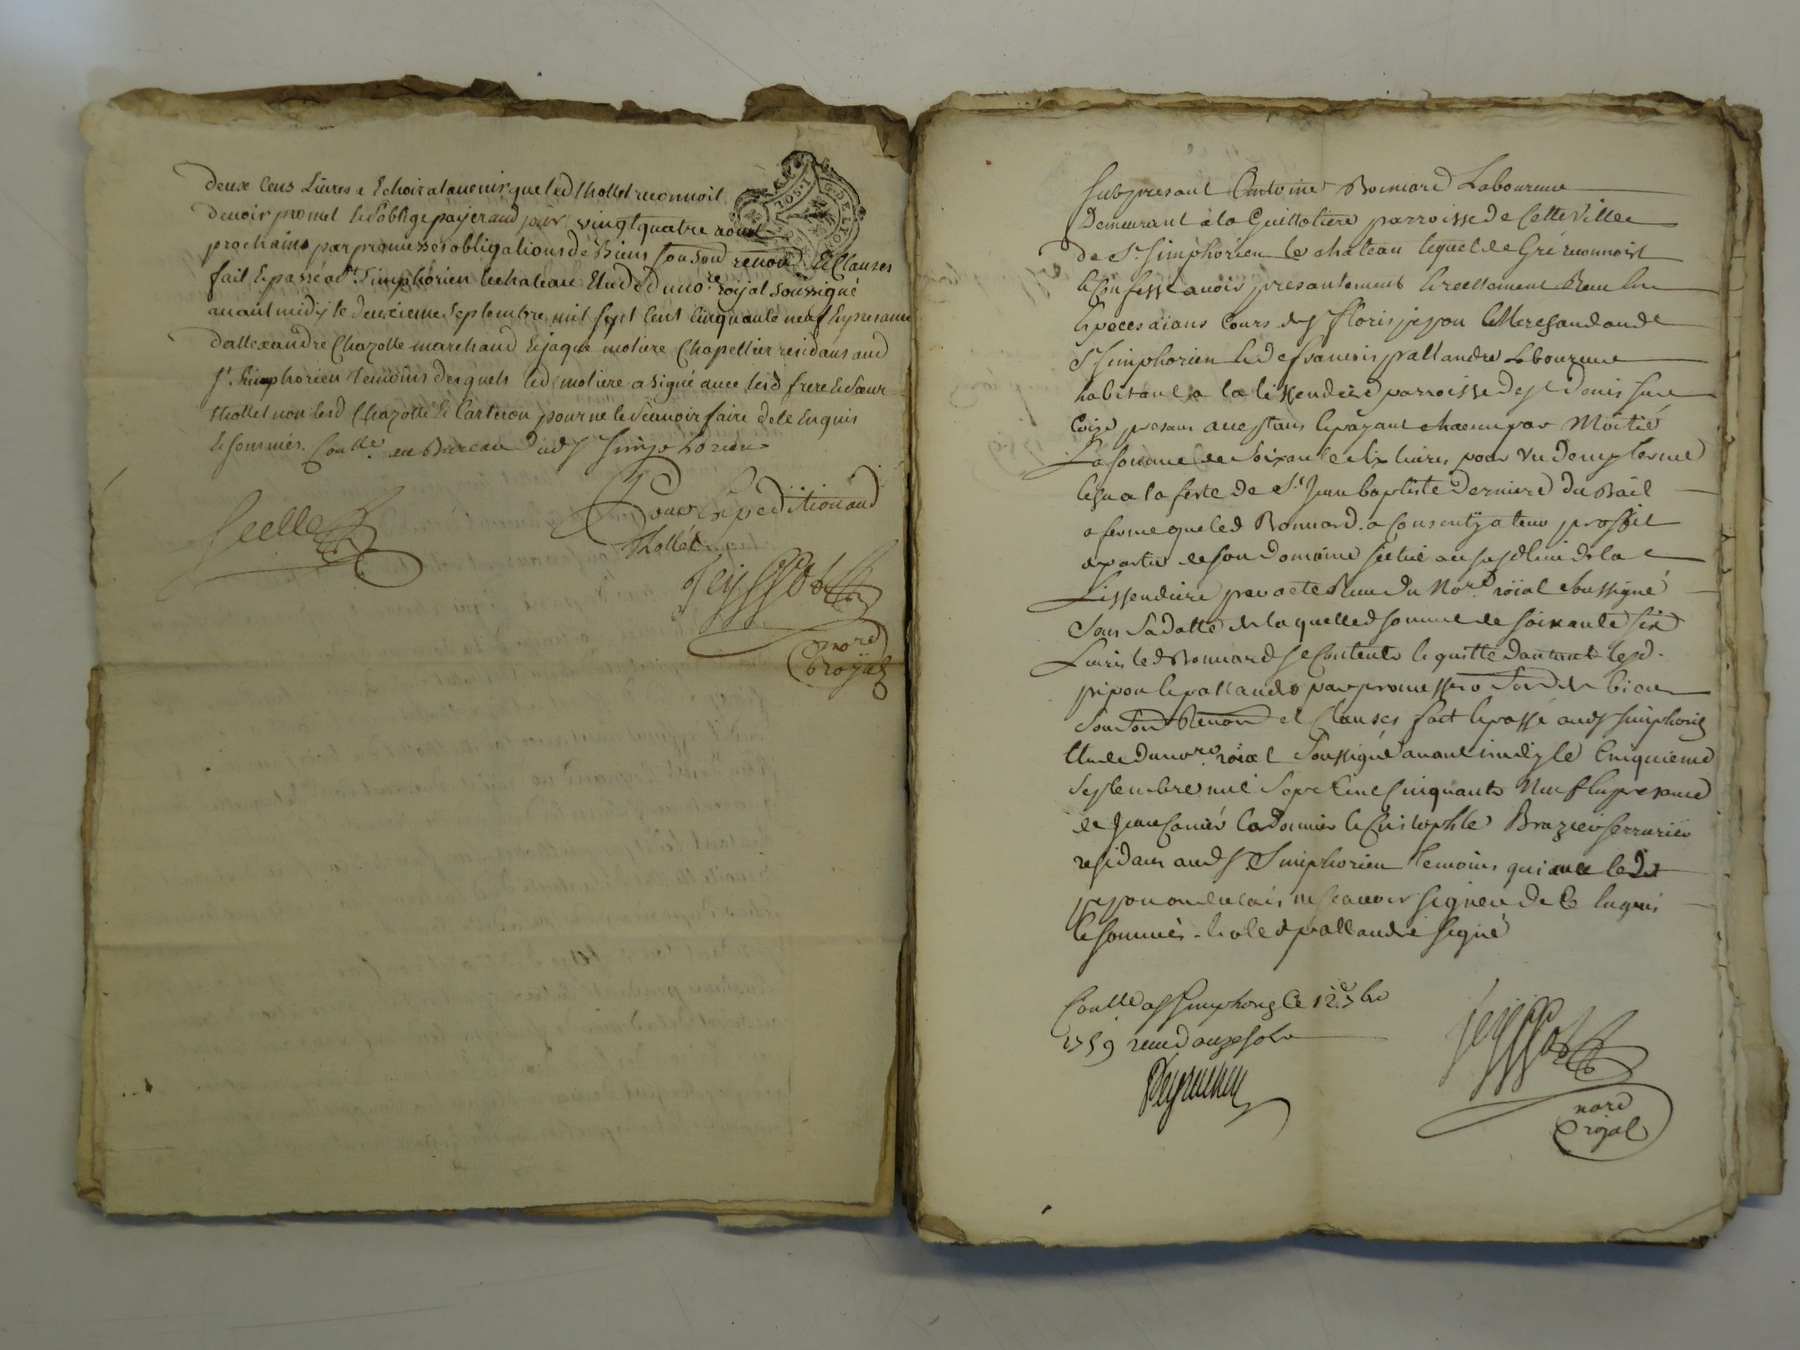 deux cens Livres a Echoir alavenir que led thollet reconnoit
devoir promet et s'oblige payer aud jour vingt quatre aout
prochains par promesses obligations de Biens soub. soud renon. et Clauses
fait et passé a St. Simphorien le chateau Etude du no.re royal soussigné
avant midy le deuxieme septembre mil sept cent cinquante neuf En presance
d'allexandre Chazotte marchand Et jaque moliere Chapellier residans aud
St. Simphorien temoins desquels led moliere a signé avec lesd frere et soeur
thollet non lesd Chazotte et Carteron pour ne le sçavoir faire de ce Enquis
et sommés. Conllé au Bureau dud St Simphorien
Scellé
Pour Expedition aud
thollet
Teyssot
nore
royal
Subpresant Antoine Bonnard Laboureur
Demeurant a la Guillotiere parroisse de Cette Ville
de St. Simphorien le chateau lequel de Gré reconnoist
et Confesse avoir presantement et reellement Receu En
Especes aians Cours de Sr floris pipon Me Marchand aud
St. Simphorien et de francois pallandre Laboureur
habitant a la Lissendiere parroisse de St denis sur
Coise presans acceptans et payant chacun par Moitié
La somme de Soixante six livres pour Un demy terme
Echu a la feste de St. Jean baptiste derniere du Bail
a ferme que led Bonnard a Consenty a leur proffit
de partie de son domaine scitué au susd lieu de la
Lissendiere par acte Receu du No.re roial soussigné
sous sa datte de laquelle d somme de soixante six
Livres led Bonnard se Contente et quitte d'autant lesd.
pipon et pallandre par promesses soud de biens
soud Renon et Clauses fait et passé aud St Simphorien
Etude du no.re roial soussigné avant midy le Cinquieme
septembre mil sept Cent Cinquante Neuf En presance
de Jean Cordonnier et Cristophle Brazier serrurier
residans aud St. Simphorien temoins qui avec led
pipon ont declaré ne sçavoir signer de Ce Enquis
et sommés. et a led pallandre signé
Conllé a St Simphorien le 12e 7bre
1759 receu douze sols
Peyrachon
Teyssot
nore
royal